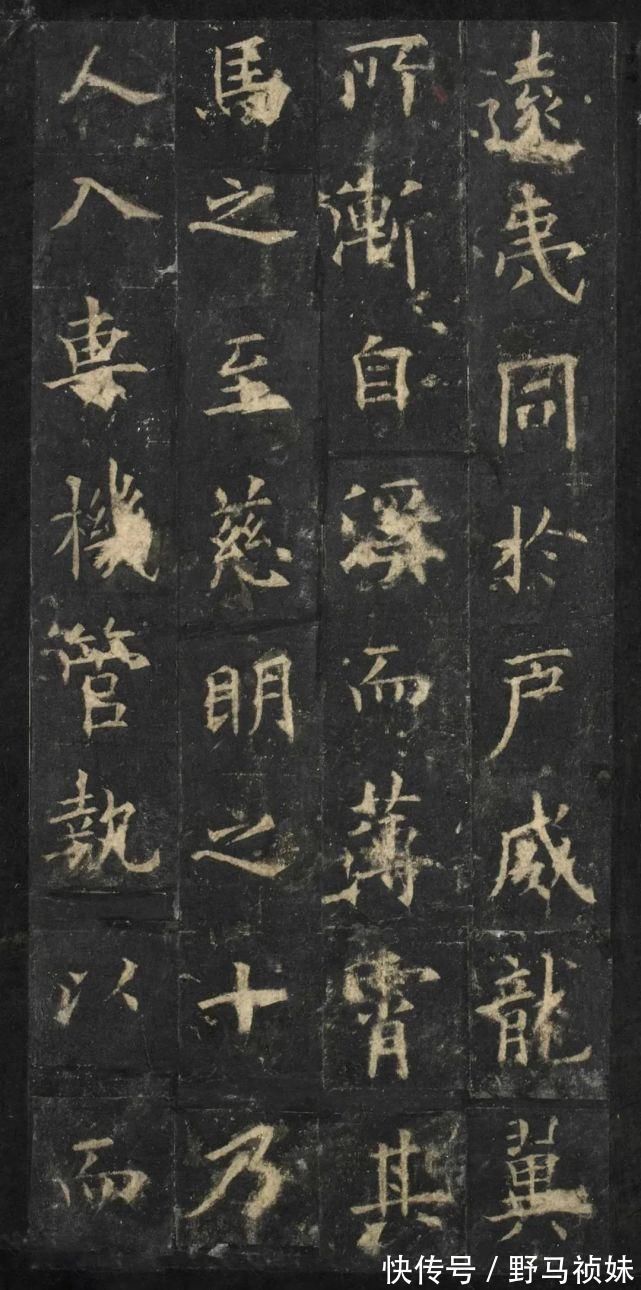 遠夷同於戶威龍冀
所漸自溪而薄霄其
馬之至慈明之十乃
人入專機管執以而
快传号 / 野马祯妹